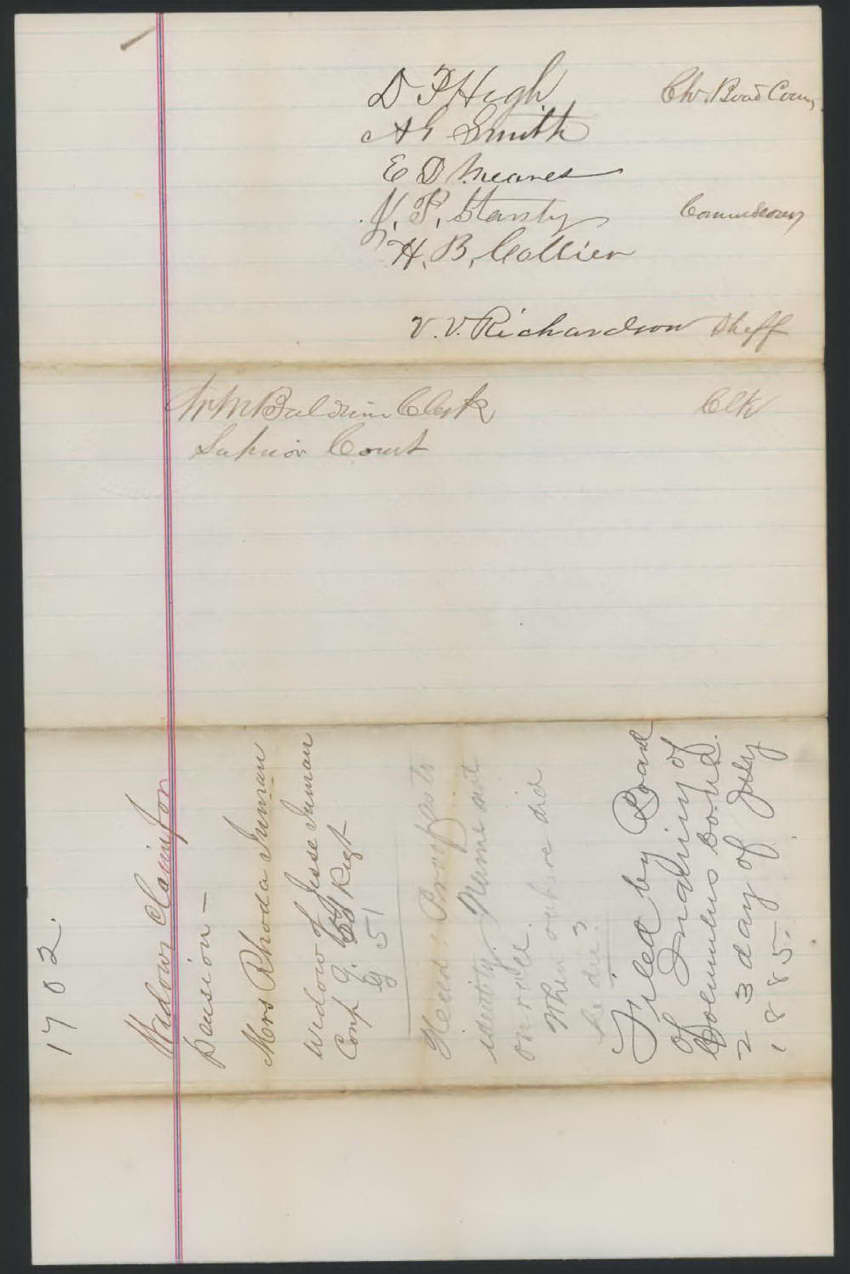 D F High Ch. Boad Com
A G Smith
E D Meares
J. P. Stanly Commissioners
H. B. Collier
V. V. Richardson Sheff
Wm M Baldwin Clerk Clk
Superior Court
1702.
Widows Claim for
pension -
Mrs Rhoda Inman
Widow of Jesse Inman
Comp G. Regt
51
Need Proof as to
identity. Name not
on roll.
When & where did
he die?
Filed by Board
of Inquiry of
Columbus Co.
23 day of July
1885.